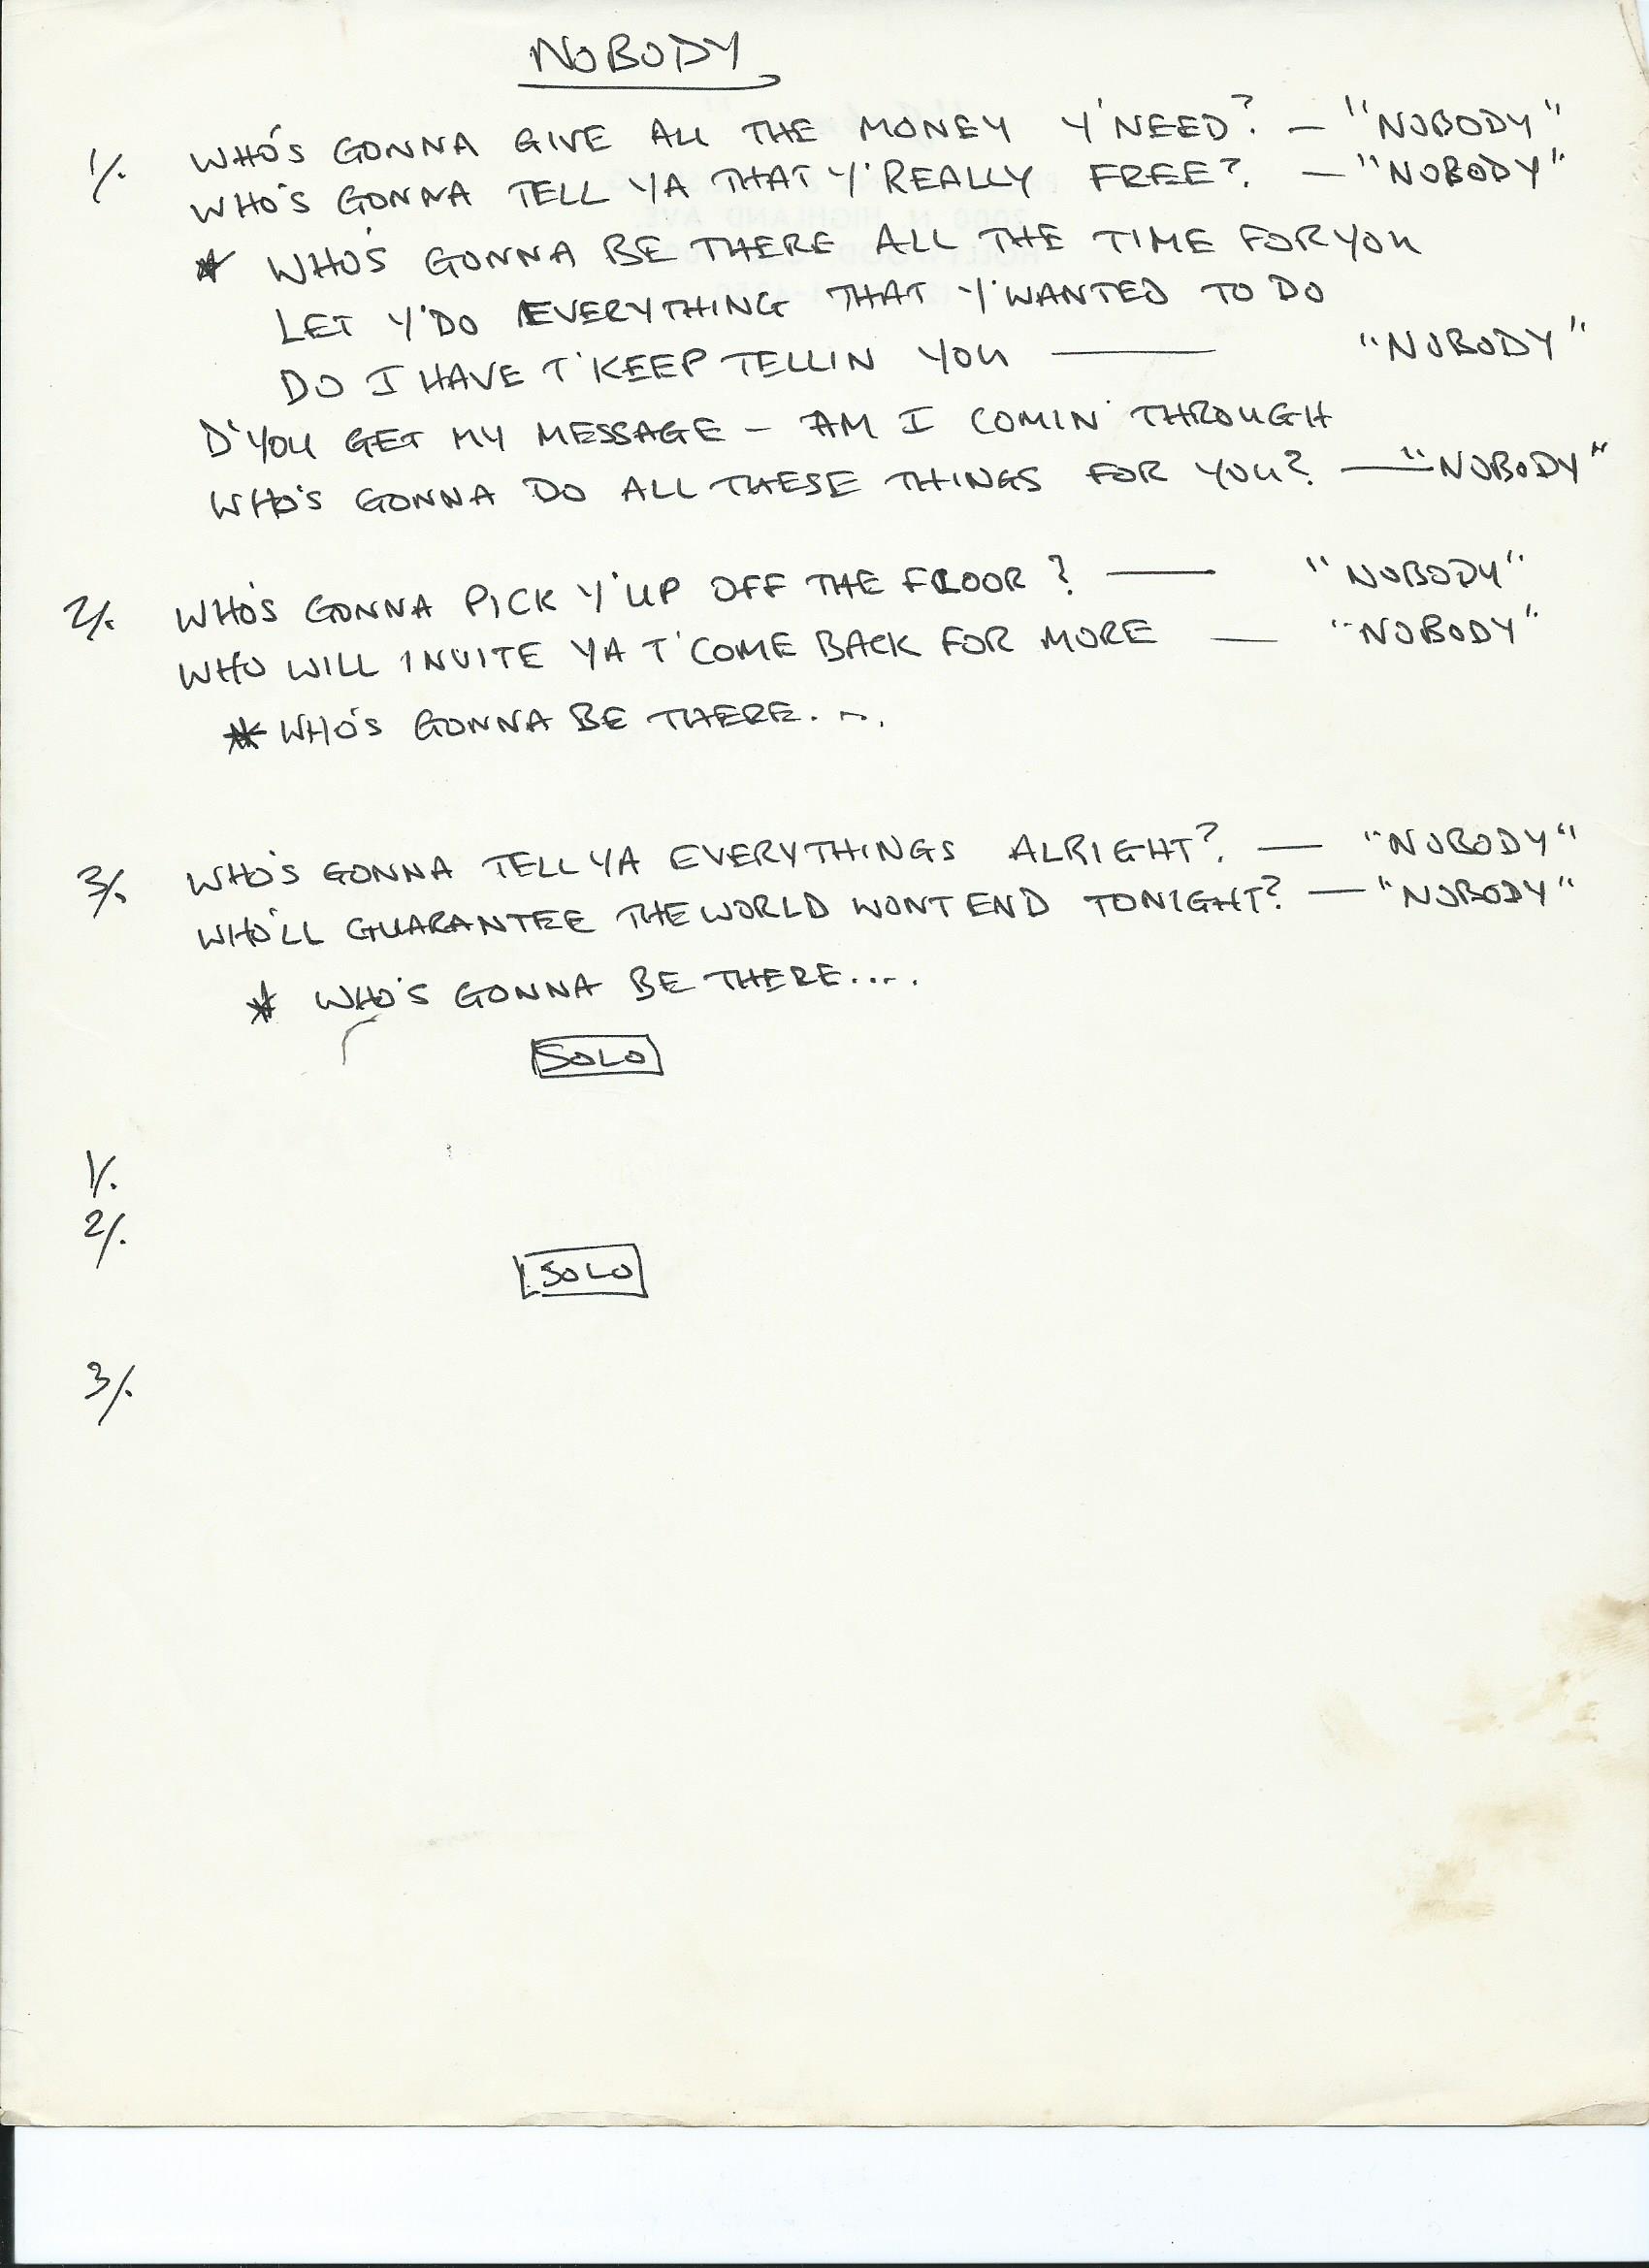 NOBODY
1/. WHO'S GONNA GIVE ALL THE MONEY Y'NEED? — "NOBODY"
WHO'S GONNA TELL YA THAT Y'REALLY FREE? — "NOBODY"
* WHO'S GONNA BE THERE ALL THE TIME FOR YOU
LET Y'DO EVERYTHING THAT Y'WANTED TO DO
DO I HAVE T'KEEP TELLIN YOU — "NOBODY"
D'YOU GET MY MESSAGE - AM I COMIN' THROUGH
WHO'S GONNA DO ALL THESE THINGS FOR YOU? — "NOBODY"
2/. WHO'S GONNA PICK Y'UP OFF THE FLOOR? — "NOBODY"
WHO WILL INVITE YA T'COME BACK FOR MORE — "NOBODY"
* WHO'S GONNA BE THERE...
3/. WHO'S GONNA TELL YA EVERYTHINGS ALRIGHT? — "NOBODY"
WHO'LL GUARANTEE THE WORLD WONT END TONIGHT? — "NOBODY"
* WHO'S GONNA BE THERE....
SOLO
1/.
2/.
SOLO
3/.